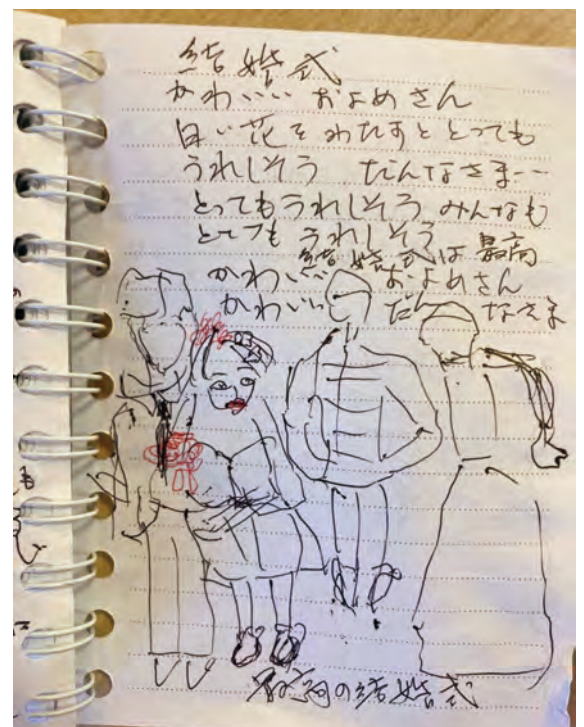 結婚式
かわいい およめさん
白い花をわたすと とっても
うれしそう だんなさま……
とってもうれしそう みんなも
とっても うれしそう
結婚式は 最高
かわいい およめさん
かわいい だんなさま
の結婚式